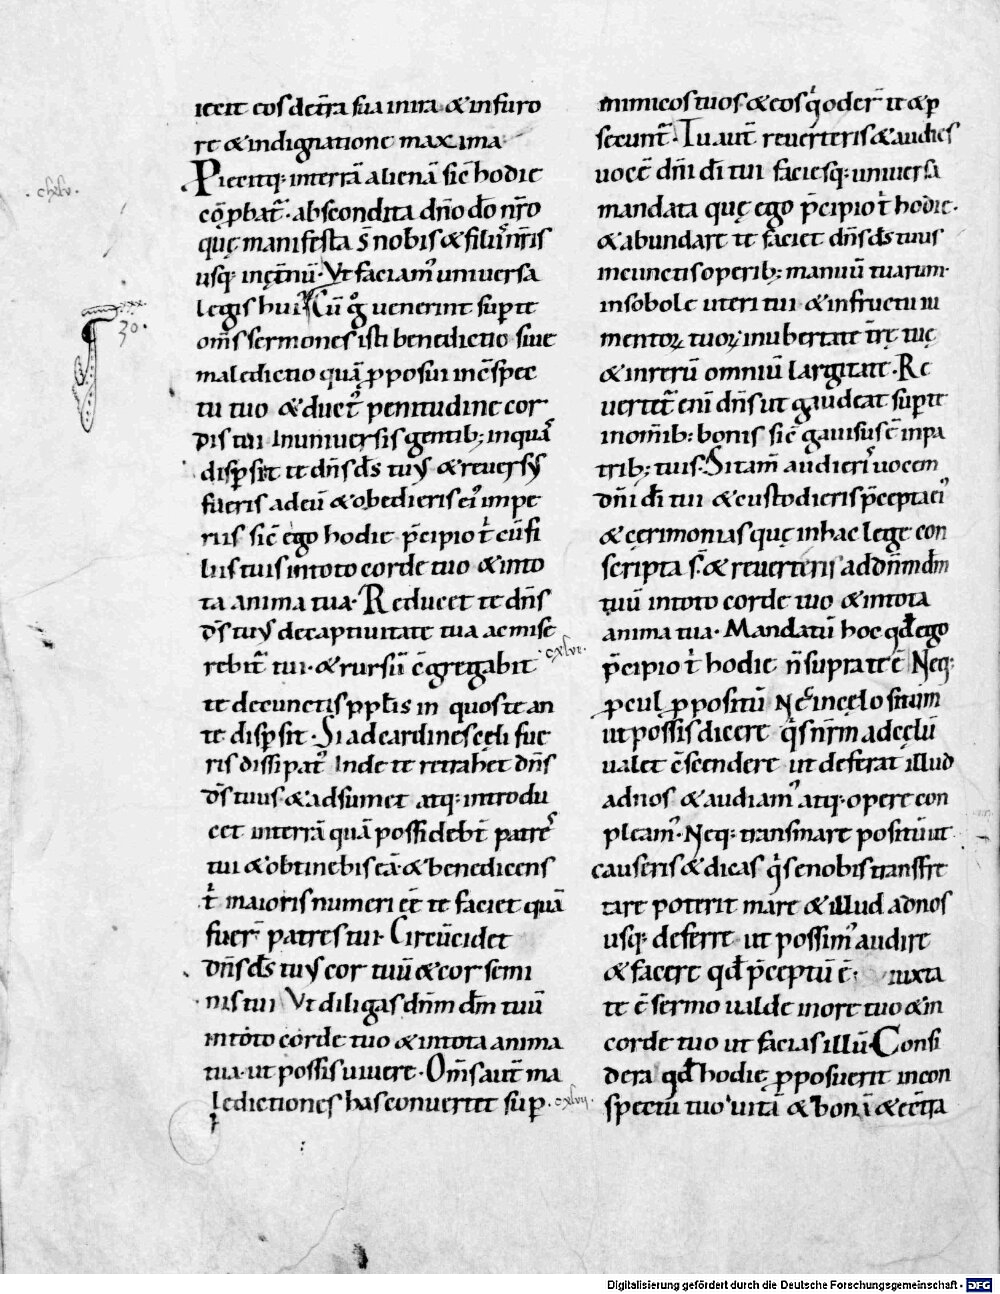 iecit eos de tr̄a sua in ira & in furo
re & indignatione maxima·
Piecitq: in terrā alienā sic̄ hodie
cōpbat᷒· abscondita dn̄o dō nr̄o
quę manifesta s̄ nobis & filiis nr̄is
usq: in ęt̄nū· Vt faciam᷒ universa
legis hui᷒ Cū g̊ venerint sup te
om̄s sermones isti benedictio sive
maledictio quā pposui in c̄spec
tu tuo & duct᷒ penitudine cor
dis tui In universis gentib; in quā
disp̄sit te dn̄s ds̄ tuus & reversus
fueris ad eū & obedieris ei᷒ impe
riis sic̄ ego hodie p̄cipio t̄ cū fi
liis tuis in toto corde tuo & in to
ta anima tua· Reducet te dn̄s
ds̄ tuus de captivitate tua ac mise
rebit᷒ tui· & rursū c̄gregabit
te de cunctis ppl̄is in quos te an
te disp̄sit· Si ad cardines cęli fue
ris dissipat᷒ Inde te retrahet dn̄s
ds̄ tuus & adsumet atq: introdu
cet in terrā quā possideb̄t patres
tui & obtinebis eā· & benedicens
t̄ maioris numeri ee̅ te faciet quā
fuer̄ patres tui· Circūcidet
dn̄s ds̄ tuus cor tuū & cor semi
nis tui Vt diligas dn̄m dm̄ tuū
in toto corde tuo & in tota anima
tua· ut possis vivere· Om̄s aut̄ ma
ledictiones has convertet sup
inimicos tuos & eos q̇ oder̄ it & p
secunt᷒· Tu aut̄ reverteris & audies
vocē dn̄i dī tui faciesq: universa
mandata quę ego p̄cipio t̄ hodie·
& abundare te faciet dn̄s ds̄ tuus
in cunctis operib; manuū tuarum·
in sobole uteri tui & in fructu iu
mentoꝝ tuoꝝ in ubertate tr̄ę tuę
& in rerū omniū largitate· Re
vertet᷒ eni dn̄s ut gaudeat sup te
in omib: bonis sic̄ gavisus ē in pa
trib; tuis· Si tam̄ audieris vocem
dn̄i dī tui & custodieris p̄cepta ei᷒
& cęrimonias quę in hac lege con
scripta s̄· & reverteris ad dn̄m dm̄
tuū in toto corde tuo & in tota
anima tua· Mandatū hoc qd̄ ego
p̄cipio t̄ hodie n̄ supra te ē Neq:
pcul ppositū Nec in cęlo situm
ut possis dicere q̇s nr̄m ad cęlū
valet c̄scendere ut deferat illud
ad nos & audiam᷒ atq· opere con
pleam᷒· Neq: trans mare positū ut
causeris & dicas q̇s e nobis transfre
tare poterit mare & illud ad nos
usq: deferre ut possim᷒ audire
& facere qd̄ p̄ceptū ē· iuxta
te ē sermo valde in ore tuo & in
corde tuo ut facias illū· Consi
dera qd̄ hodie pposuerit in con
spectu tuo vitā & bonā & ec̄tra
chxlv.
30.
cxlvi.
cxlvii.
Digitalisierung gefördert durch die Deutsche Forschungsgemeinschaft - DFG